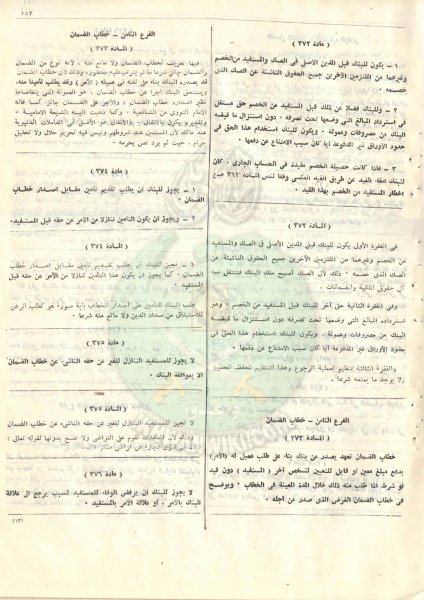 ١٨٢
( مادة ٣٧٢ )
١ – يكون للبنك قبل المدين الأصلى فى الصك والمستفيد من الخصم
وغيرهما من الملتزمين الآخرين جميع الحقوق الناشئة عن الصك الذى
خصمه ٠
٢ – وللبنك فضلا عن ذلك قبل المستفيد من الخصم حق مستقل
فى استرداد المبالغ التى وضعها تحت تصرفه دون استنزال ما قبضه
البنك من مصروفات وعمولة ، ويكون للبنك استخدام هذا الحق فى
حدود الأوراق غير المدفوعة أيا كان سبب الامتناع عن دفعها ٠
٣ – فإذا كانت حصيلة الخصم مقيدة فى الحساب الجارى كان
للبنك الغاء القيد عن طريق القيد العكسى وفقا لنص المادة ٣٩٣ مع
اخطار المستفيد من الخصم بهذا القيد ٠
( المادة ٣٧٢ )
فى الفقرة الأولى يكون للبنك قبل المدين الأصل فى الصك والمستفيد
من الخصم وغيرهما من الملتزمين الآخرين جميع الحقوق الناشئة عن
الصك الذى خصمه ٠ ذلك لأن الصك أصبح ملك البنك فتنتقل معه
كل حقوق الملكية والضمانات ٠
وفى الفقرة الثانية حق آخر للبنك قبل المستفيد من الخصم ، وهو
استرداده المبالغ التى وضعها تحت تصرفه دون استنزال ما قبضه
البنك من مصروفات وعمولة ، ويكون للبنك استخدام هذا الحق فى
حدود الأوراق غير المدفوعة أيا كان سبب الامتناع عن دفعها ٠
والفقرة الثالثة تنظيم لعملية الرجوع وهذا التنظيم لحفظ الحقوق
ولا يوجد ما يمنعه شرعا ٠
الفرع الثامن – خطاب الضمان
( المادة ٣٧٣ )
خطاب الضمان تعهد يصدر من بنك بناء على طلب عميل له (الآمر)
بدفع مبلغ معين أو قابل للتعيين لشخص آخر ( المستفيد ) دون قيد
أو شرط اذا طلب منه ذلك خلال المدة المعينة فى الخطاب ٠ ويوضح
فى خطاب الضمان الغرض الذى صدر من أجله ٠
الفرع الثامن – خطاب الضمان
( المادة ٣٧٣ )
فيها تعريف لخطاب الضمان ولا مانع منه ، لأنه نوع من الضمان
والضمان جائز شرعا ما لم يترتب عليه محذور ، وذلك لأن خطاب الضمان
تعهد يصدره البنك بناء على ثقته فى عميله ( الآمر ) وقد يطلب تأمينا منه ،
ويستحق البنك أجرا عن خطاب الضمان ، هو العمولة التى يتقاضاها
نظير اصداره خطاب الضمان ، والأجر على الضمان جائز كما قاله
الامام النووى من الشافعية ، كما ذهبت اليه الشيعة الامامية ٠
عند مالك لأن المسلمين عند شروطهم وليس فيه تحريم حلال ولا تحليل
حرام ، حيث لم يرد نص يحرمه ٠
( مادة ٣٧٤ )
١ – يجوز للبنك أن يطلب تقديم تأمين مقابل اصدار خطاب
الضمان ٠
٢ – ويجوز أن يكون التأمين تنازلا من الآمر عن حقه قبل المستفيد ٠
( المادة ٣٧٤ )
١ – تجيز للبنك أن يطلب تقديم تأمين مقابل اصدار خطاب
الضمان ، كما يجوز أن يكون هذا التأمين تنازلا من الآمر عن حقه قبل
المستفيد ٠
طلب البنك للتأمين على اصدار الخطاب بأية صورة هو كطلب الرهن
للاستيثاق من سداد الدين ولا مانع منه شرعا ٠
( مادة ٣٧٥ )
لا يجوز للمستفيد التنازل للغير عن حقه الناشىء عن خطاب الضمان
الا بموافقة البنك ٠
( المادة ٣٧٥ )
لا تجيز للمستفيد التنازل للغير عن حقه الناشىء عن خطاب الضمان
وذلك لأن المعاملات تقوم على التراضى ولا تصح بدونها لقوله تعالى :
( مادة ٣٧٦ )
لا يجوز للبنك أن يرفض الوفاء للمستفيد لسبب يرجع الى علاقة
البنك بالآمر ، أو علاقة الآمر بالمستفيد ٠
(١٣)